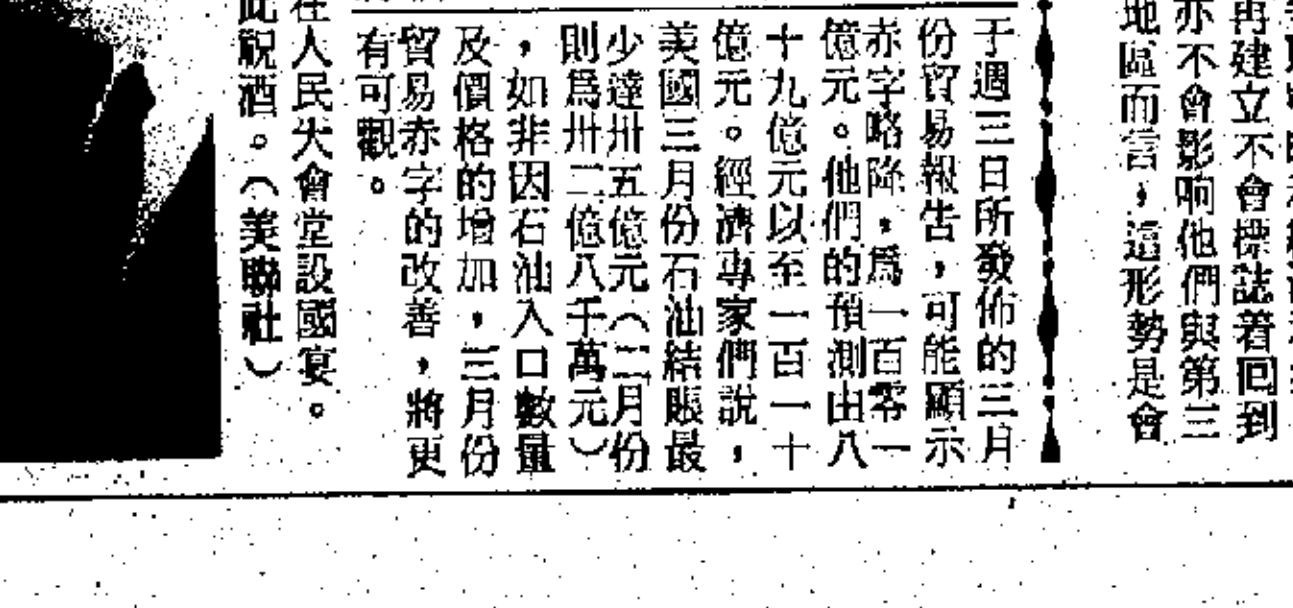 再建立不會標誌着回到
亦不會影响他們與第三
地區而言，這形勢是會
于週三日所發佈的三月
份貿易報告，可能顯示
赤字略降，爲一百零一
億元。他們的預測由八
十九億元以至一百一十
億元。經濟專家們說，
美國三月份石油結賬最
少達卅五億元（二月份
則爲卅二億八千萬元）
，如非因石油入口數量
及價格的增加，三月份
貿易赤字的改善，將更
有可觀。
在人民大會堂設國宴。
此祝酒。（美聯社）